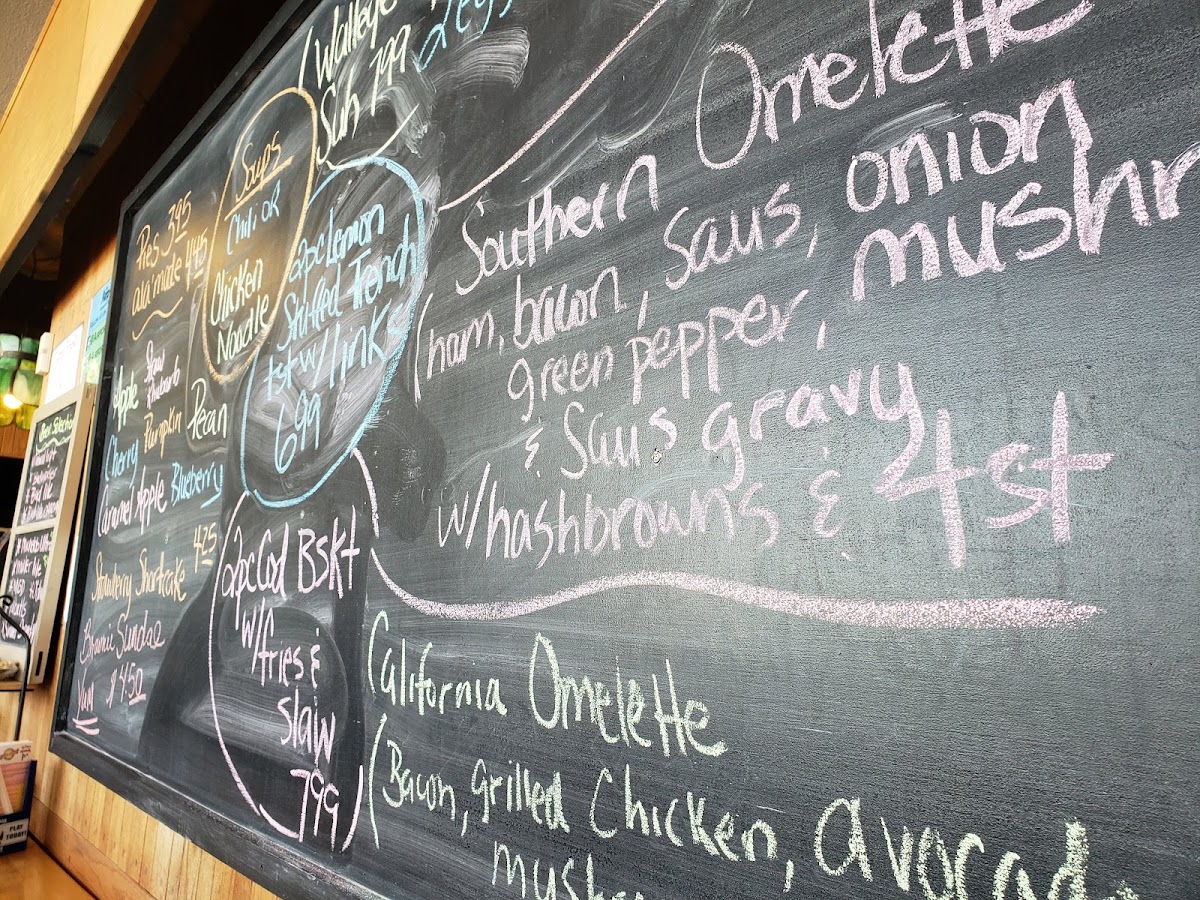 Pies 3.95
ala'mode 4.45
Apple Straw
Rhubarb
Cherry Pumpkin Pecan
Caramel Apple Blueberry
Strawberry Shortcake 4.25
Brownie Sundae
Yum $4.50
Soups
Chili OR
Chicken
Noodle
Walleye
799
2pc Lemon
Stuffed French
tst w/links
699
2pc Cod Bskt
w/fries &
slaw
799
Southern Omelette
(ham, bacon, saus, onion
green pepper, mushr
& Saus gravy
w/hashbrowns & 4st
California Omelette
(Bacon, grilled Chicken, avocad
mush
PLAY
TODAY!